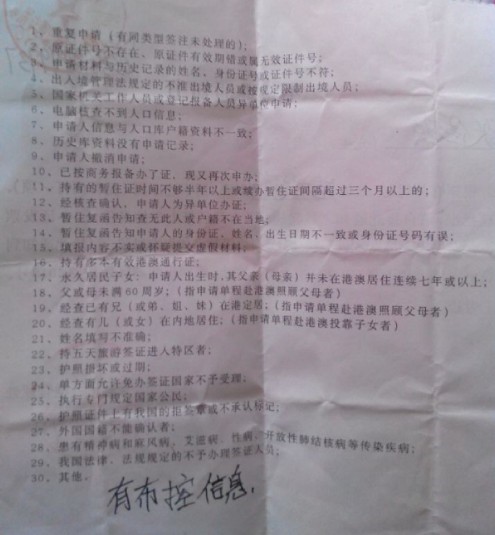 1、重复申请(有同类型签注未处理的);
2、原证件号不存在、原证件有效期错或属无效证件号;
3、申请材料与历史记录的姓名、身份证号或证件号不符;
4、出入境管理法规定的不准出境人员或按规定限制出境人员;
5、国家机关工作人员或登记报备人员异单位申请;
6、电脑核查不到人口信息;
7、申请人信息与人口库户籍资料不一致;
8、历史库资料没有申请记录;
9、申请人撤消申请;
10、已按商务报备办了证,现又再次申办;
11、持有的暂住证时间不够半年以上或续办暂住证间隔超过三个月以上的;
12、经核查确认,申请人为异单位办证;
13、暂住复函告知查无此人或户籍不在当地;
14、暂住复函告知申请人的身份证、姓名、出生日期不一致或身份证号码有误;
15、填报内容不实或怀疑提交虚假材料;
16、持有多本有效港澳通行证;
17、永久居民子女:申请人出生时,其父亲(母亲)并未在港澳居住连续七年或以上;
18、父或母未满60周岁;(指申请单程赴港澳照顾父母者)
19、经查已有兄(或弟、姐、妹)在港定居;(指申请单程赴港澳照顾父母者)
20、经查有儿(或女)在内地居住;(指申请单程赴港澳投靠子女者)
21、姓名填写不准确;
22、持五天旅游签证进入特区者;
23、护照损坏或过期;
24、单方面允许免办签证国家不予受理;
25、执行专门规定国家公民;
26、护照证件上有我国的拒签章或不承认标记;
27、外国国籍不能确认者;
28、患有精神病和麻风病、艾滋病、性病、开放性肺结核病等传染疾病;
29、我国法律、法规规定的不予办理签证人员;
30、其他。
有布控信息.